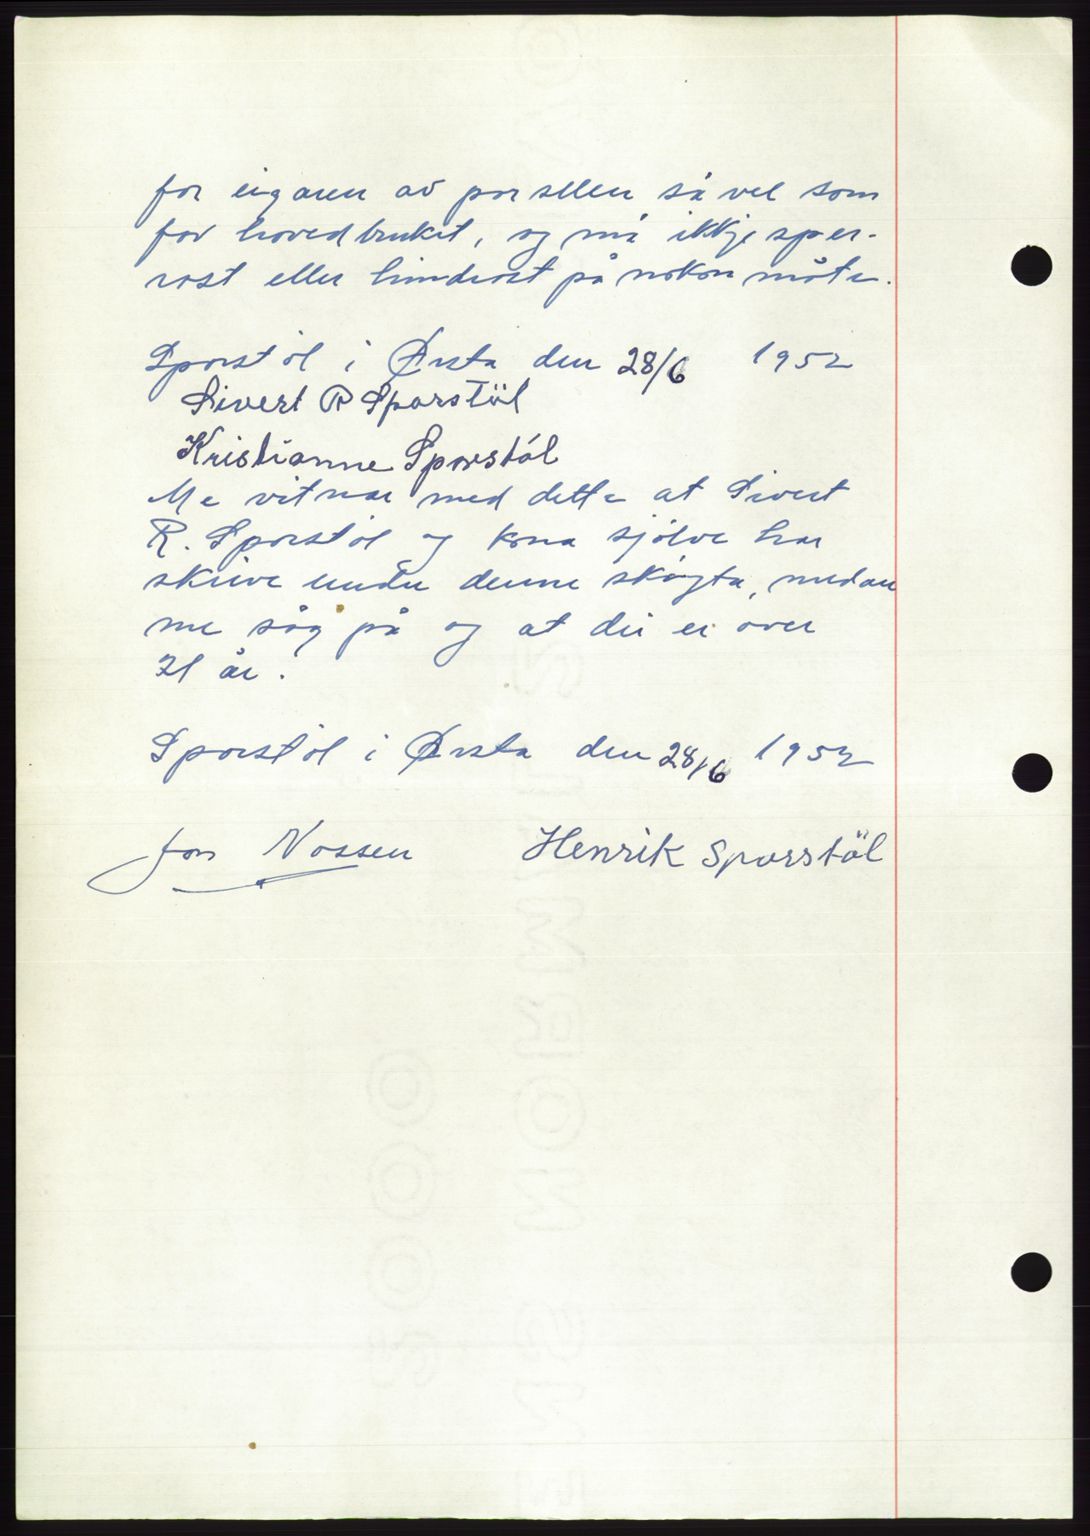 for eigaren av parsellen så vel som
for hovedbruket, og må ikkje sper-
rast eller hindrast på nokon måte.
Sporstøl i Ørsta den 28/6 1952
Sivert R Sporstöl
Kristianne Sporstøl
Me vitnar med dette at Sivert
R. Sporstøl og kona sjølve har
skrive under denne skøyta, medan
me såg på og at dei er over
21 år.
Sporstøl i Ørsta den 28/6 1952
Jon Nossen Henrik Sporstöl